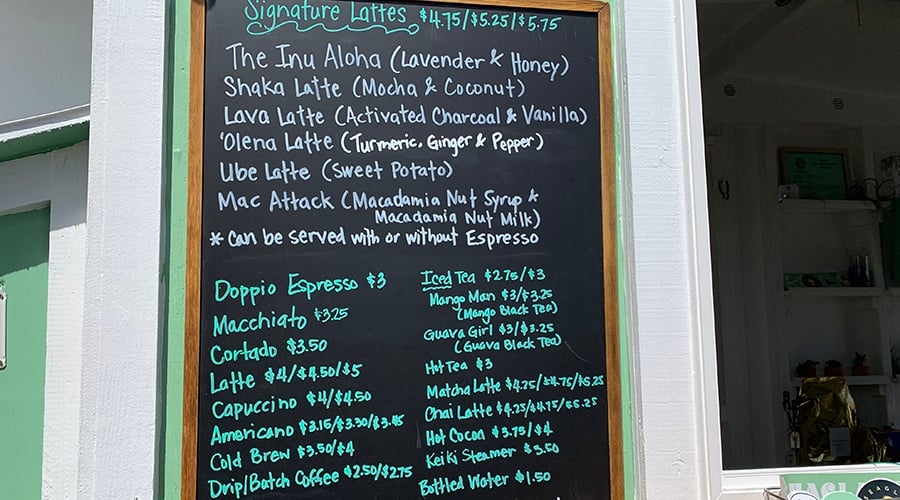 Signature Lattes $4.75/$5.25/$5.75
The Inu Aloha (Lavender & Honey)
Shaka Latte (Mocha & Coconut)
Lava Latte (Activated Charcoal & Vanilla)
'Olena Latte (Turmeric, Ginger & Pepper)
Ube Latte (Sweet Potato)
Mac Attack (Macadamia Nut Syrup &
Macadamia Nut Milk)
* Can be served with or without Espresso
Doppio Espresso $3
Macchiato $3.25
Cortado $3.50
Latte $4/$4.50/$5
Capuccino $4/$4.50
Americano $3.15/$3.30/$3.45
Cold Brew $3.50/$4
Drip/Batch Coffee $2.50/$2.75
Iced Tea $2.75/$3
Mango Man $3/$3.25
(Mango Black Tea)
Guava Girl $3/$3.25
(Guava Black Tea)
Hot Tea $3
Matcha Latte $4.25/$4.75/$5.25
Chai Latte $4.25/$4.75/$5.25
Hot Cocoa $3.75/$4
Keiki Steamer $3.50
Bottled Water $1.50